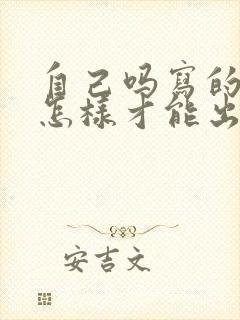 自己吗寫的
怎樣才能出
安吉文